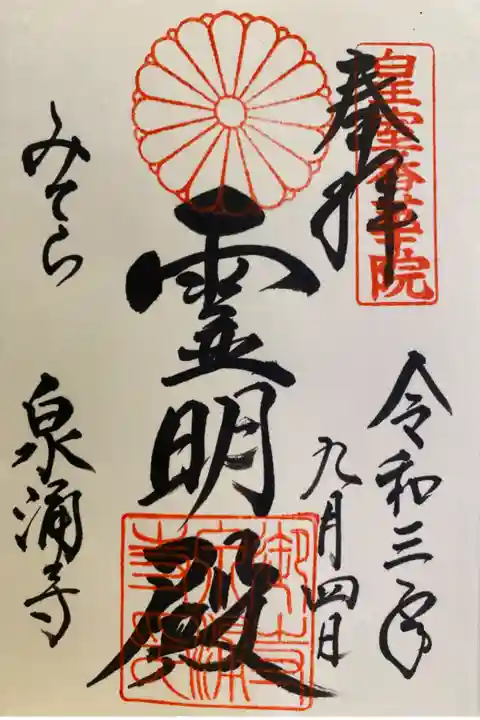 皇室香華院
奉拝
令和三年
九月四日
靈明殿
みてら
泉涌寺